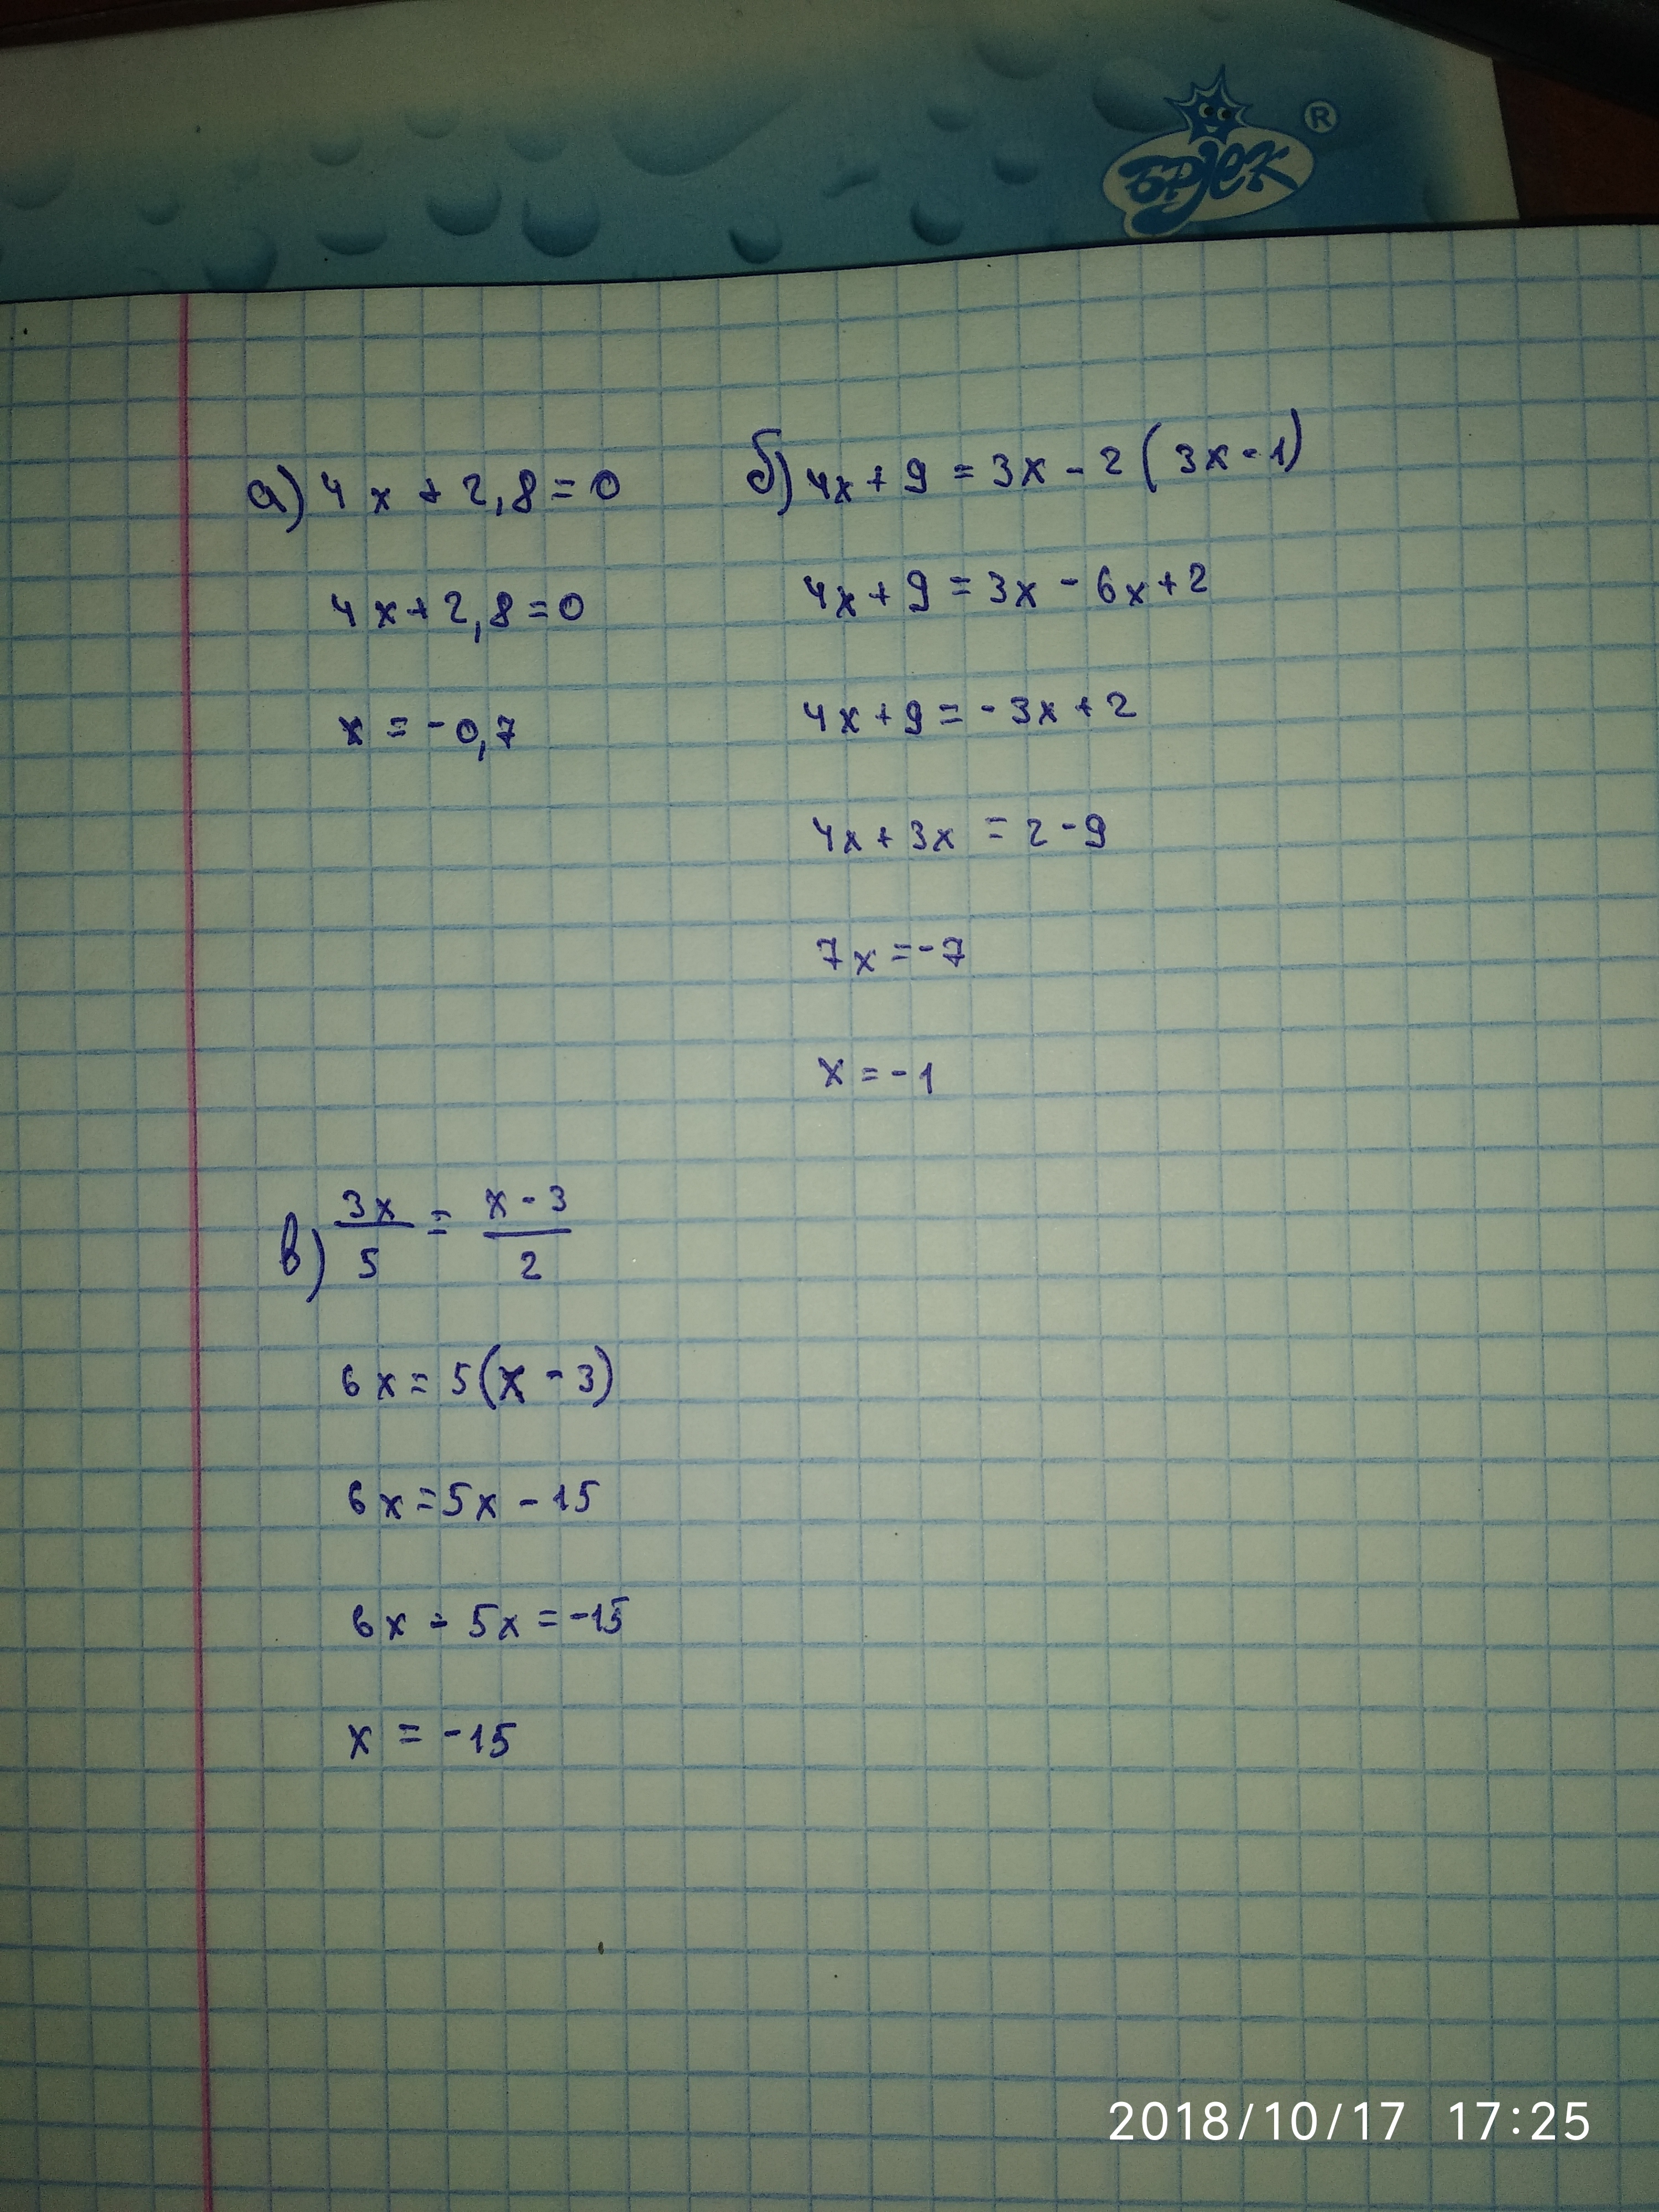 БРјЕК ®
а) 4x + 2,8 = 0
4x + 2,8 = 0
x = -0,7
б) 4x + 9 = 3x - 2 ( 3x - 1)
4x + 9 = 3x - 6x + 2
4x + 9 = - 3x + 2
4x + 3x = 2 - 9
7x = -7
x = -1
в) 3x/5 = x - 3/2
6x = 5(x - 3)
6x = 5x - 15
6x - 5x = -15
x = -15
2018/10/17 17:25